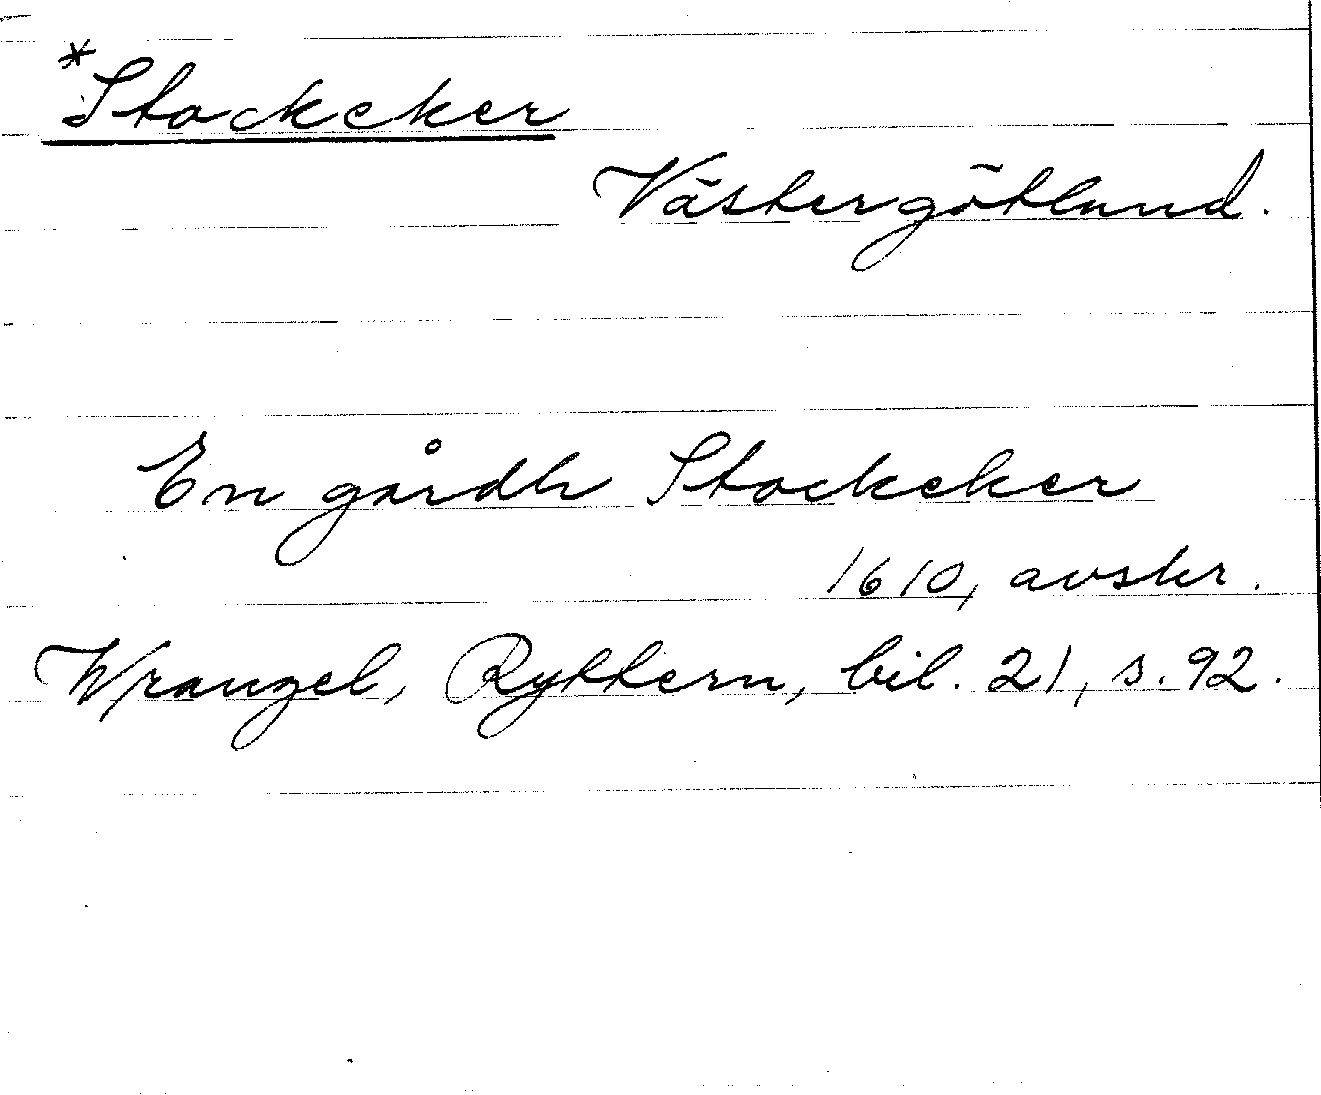 *Stockeker
Västergötland.
En gårdh Stockeker
1610, avskr.
Wrangel, Ryttern, bil. 21, s. 92.